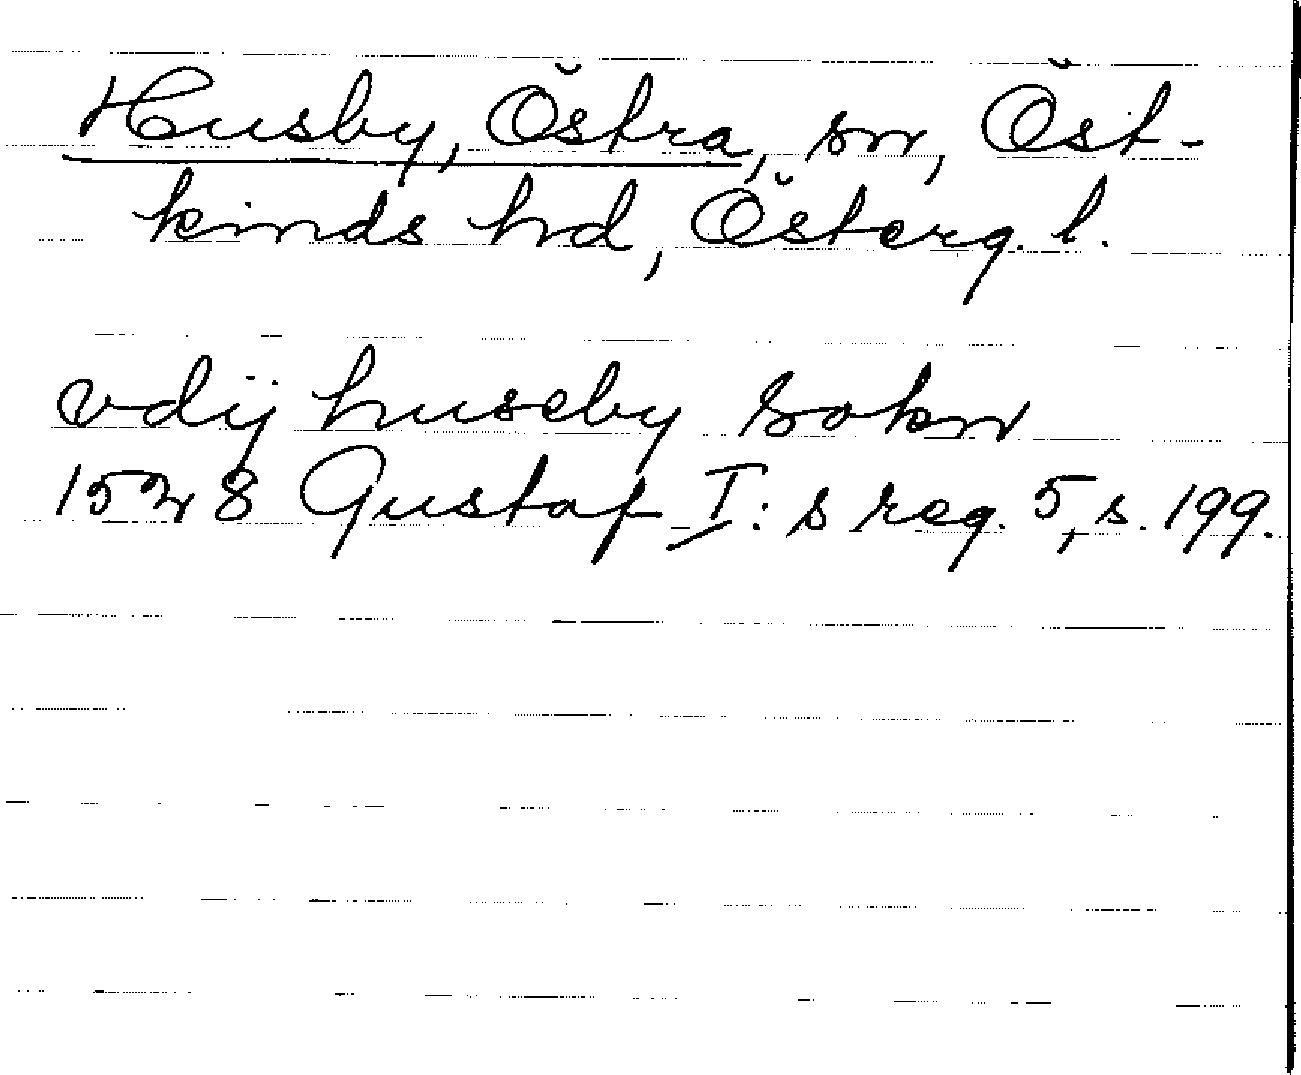 Husby, Östra, sn, Öst-
kinds hd, Österg. l.
vdij huseby sokn
1528 Gustaf I: s reg. 5, s. 199.